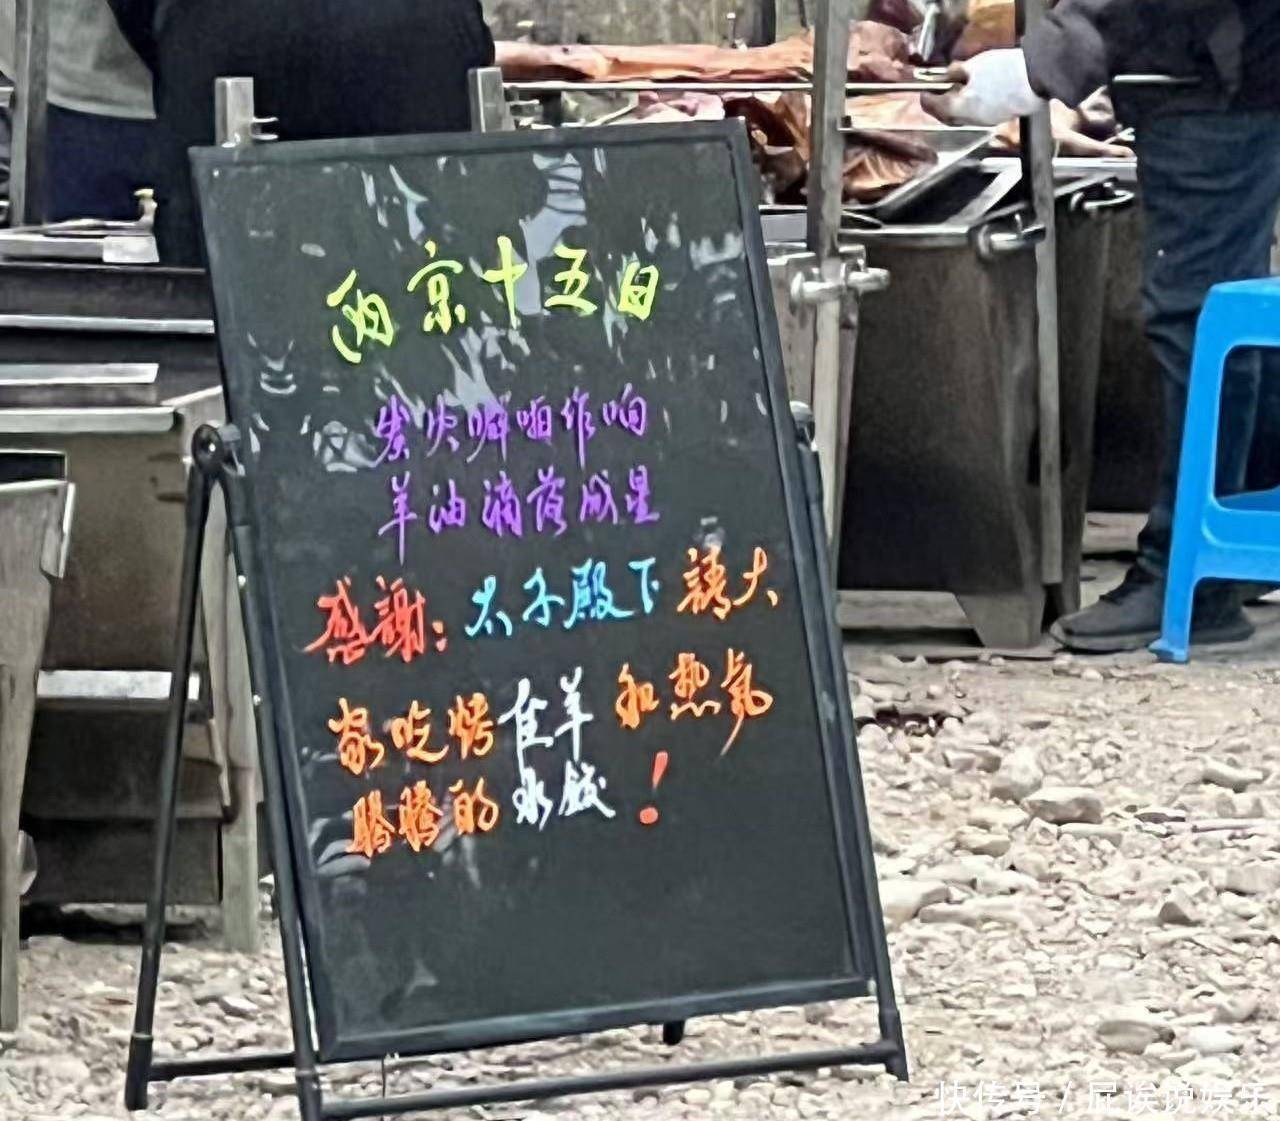 两京十五日
炭火噼啪作响
羊油滴落成星
感謝：太子殿下 請大
家吃烤全羊和热氣
騰騰的水餃！
快传号 / 屁诶说娱乐